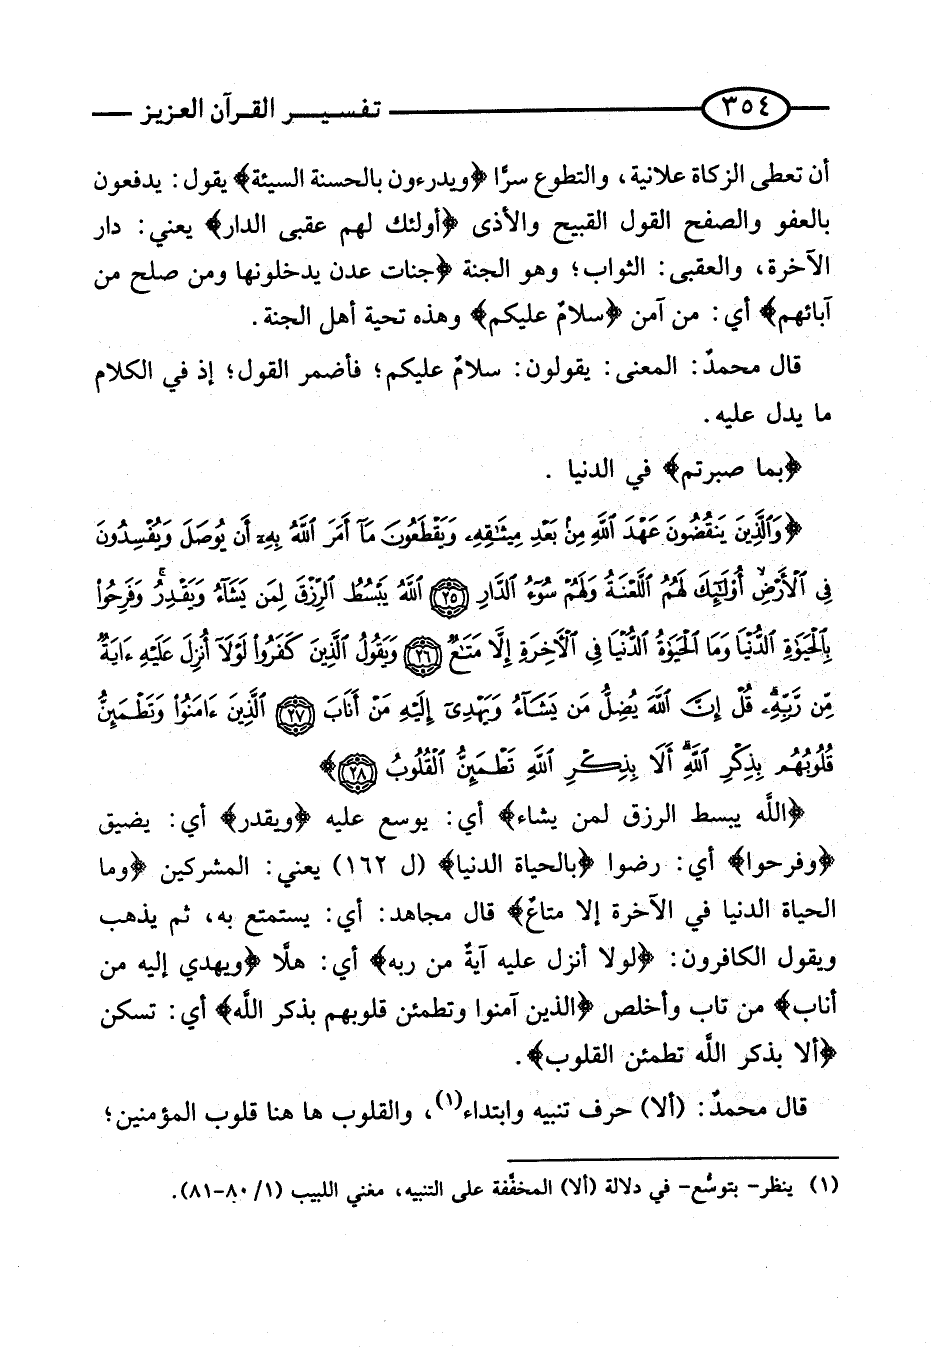 ٣٥٤ تفسير القرآن العزيز
أن تعطى الزكاة علانية، والتطوع سرًّا ﴿ويدرءون بالحسنة السيئة﴾ يقول: يدفعون
بالعفو والصفح القول القبيح والأذى ﴿أولئك لهم عقبى الدار﴾ يعني: دار
الآخرة، والعقبى: الثواب؛ وهو الجنة ﴿جنات عدن يدخلونها ومن صلح من
آبائهم﴾ أي: من آمن ﴿سلامٌ عليكم﴾ وهذه تحية أهل الجنة.
قال محمدٌ: المعنى: يقولون: سلامٌ عليكم؛ فأضمر القول؛ إذ في الكلام
ما يدل عليه.
﴿بما صبرتم﴾ في الدنيا .
﴿وَٱلَّذِينَ يَنقُضُونَ عَهْدَ ٱللَّهِ مِنۢ بَعْدِ مِيثَـٰقِهِۦ وَيَقْطَعُونَ مَآ أَمَرَ ٱللَّهُ بِهِۦٓ أَن يُوصَلَ وَيُفْسِدُونَ
فِى ٱلْأَرْضِ ۙ أُو۟لَـٰٓئِكَ لَهُمُ ٱللَّعْنَةُ وَلَهُمْ سُوٓءُ ٱلدَّارِ ٢٥ ٱللَّهُ يَبْسُطُ ٱلرِّزْقَ لِمَن يَشَآءُ وَيَقْدِرُ ۚ وَفَرِحُوا۟
بِٱلْحَيَوٰةِ ٱلدُّنْيَا وَمَا ٱلْحَيَوٰةُ ٱلدُّنْيَا فِى ٱلْـَٔاخِرَةِ إِلَّا مَتَـٰعٌ ٢٦ وَيَقُولُ ٱلَّذِينَ كَفَرُوا۟ لَوْلَآ أُنزِلَ عَلَيْهِ ءَايَةٌ
مِّن رَّبِّهِۦ ۗ قُلْ إِنَّ ٱللَّهَ يُضِلُّ مَن يَشَآءُ وَيَهْدِىٓ إِلَيْهِ مَنْ أَنَابَ ٢٧ ٱلَّذِينَ ءَامَنُوا۟ وَتَطْمَئِنُّ
قُلُوبُهُم بِذِكْرِ ٱللَّهِ ۗ أَلَا بِذِكْرِ ٱللَّهِ تَطْمَئِنُّ ٱلْقُلُوبُ ٢٨﴾
﴿اللَّه يبسط الرزق لمن يشاء﴾ أي: يوسع عليه ﴿ويقدر﴾ أي: يضيق
﴿وفرحوا﴾ أي: رضوا ﴿بالحياة الدنيا﴾ (ل ١٦٢) يعني: المشركين ﴿وما
الحياة الدنيا في الآخرة إلا متاعٌ﴾ قال مجاهد: أي: يستمتع به، ثم يذهب
ويقول الكافرون: ﴿لولا أنزل عليه آيةٌ من ربه﴾ أي: هلَّا ﴿ويهدي إليه من
أناب﴾ من تاب وأخلص ﴿الذين آمنوا وتطمئن قلوبهم بذكر اللَّه﴾ أي: تسكن
﴿ألا بذكر اللَّه تطمئن القلوب﴾.
قال محمدٌ: (ألا) حرف تنبيه وابتداء(١)، والقلوب ها هنا قلوب المؤمنين؛
(١) ينظر- بتوسُّع- في دلالة (ألا) المخفَّفة على التنبيه، مغني اللبيب (١/ ٨٠-٨١).